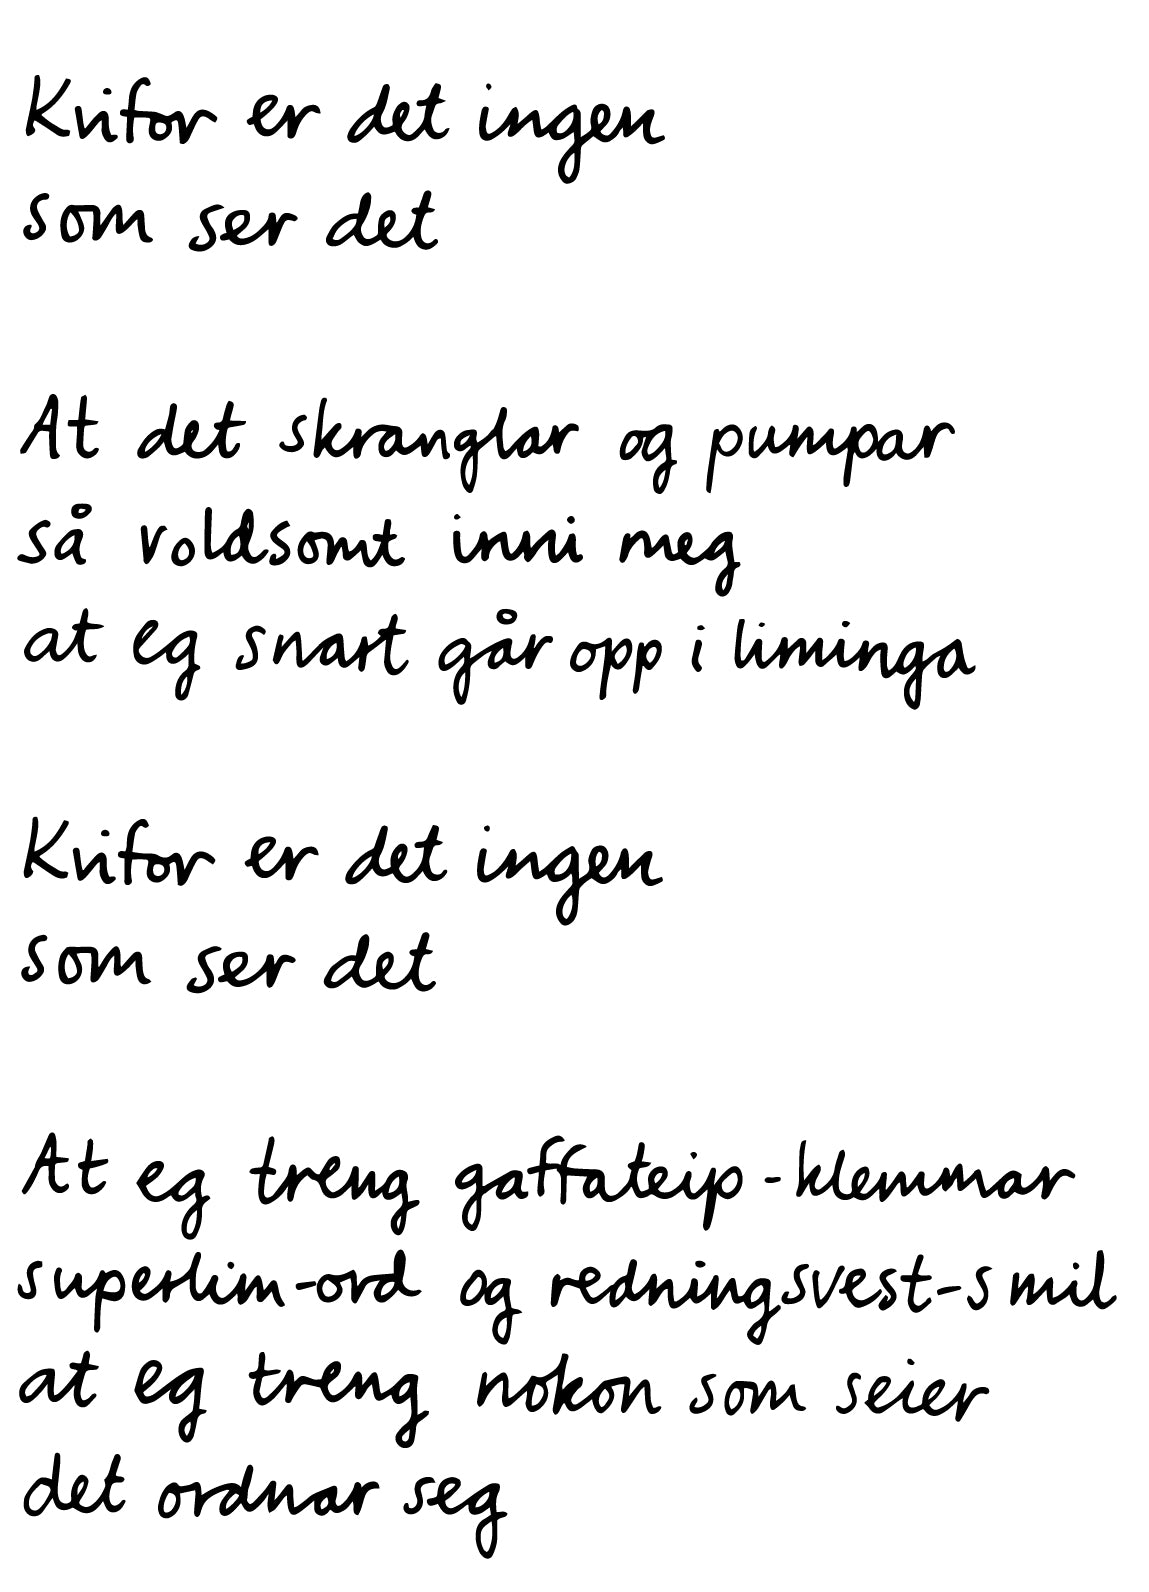 Kvifor er det ingen
som ser det
At det skranglar og pumpar
så voldsomt inni meg
at eg snart går opp i liminga
Kvifor er det ingen
som ser det
At eg treng gaffateip-klemmar
superlim-ord og redningsvest-smil
at eg treng nokon som seier
det ordnar seg